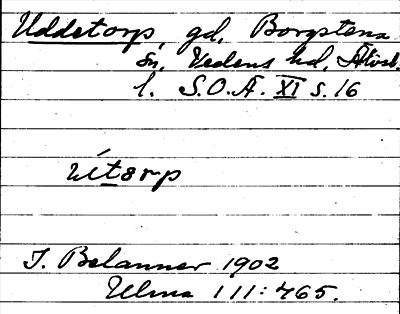 Uddetorp, gd, Borgstena
sn, Vedens hd, Älvsb.
l. S.O.Ä. XI s. 16
útorp
J. Belanner 1902
Ulma 111:465.